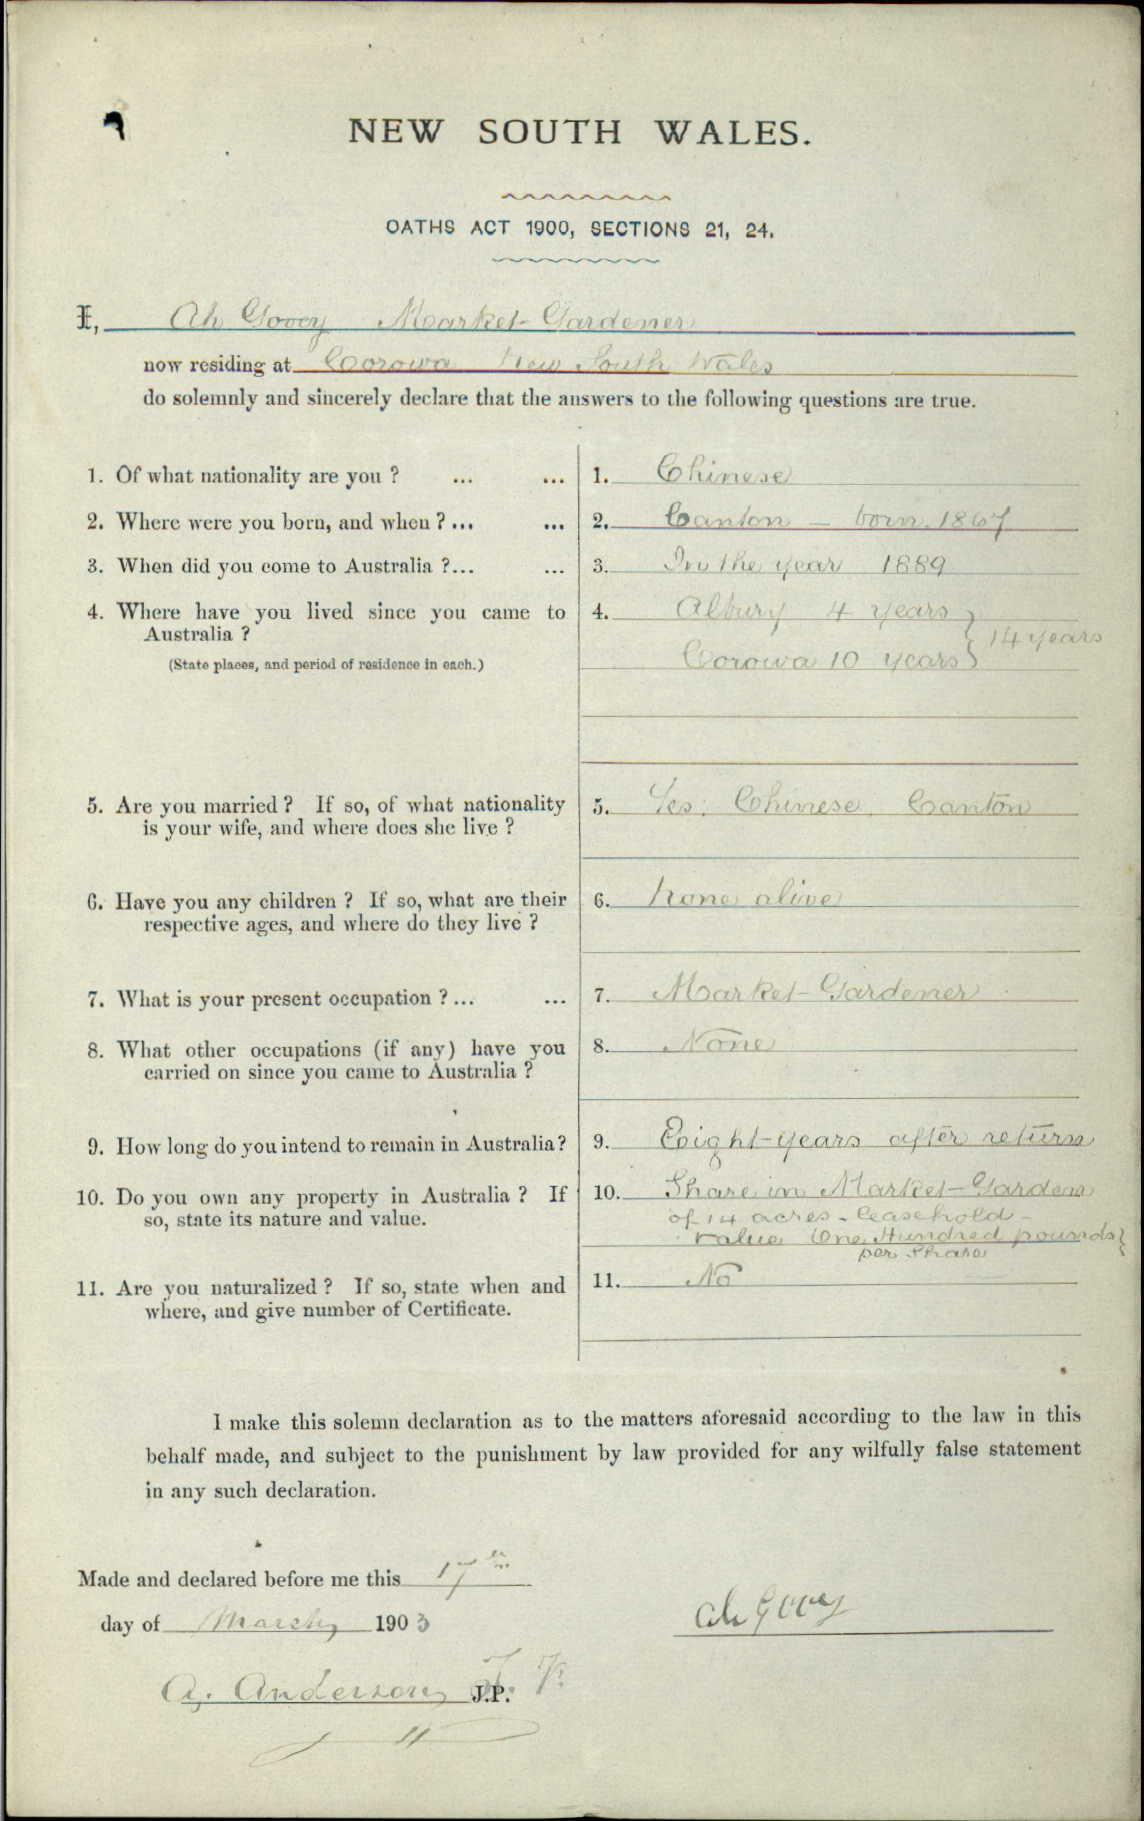 NEW SOUTH WALES.
OATHS ACT 1900, SECTIONS 21, 24.
I, Ah Gooey Market Gardener
now residing at Corowa New South Wales
do solemnly and sincerely declare that the answers to the following questions are true.
1. Of what nationality are you ? ... ... 1. Chinese
2. Where were you born, and when ? ... ... 2. Canton - born 1867
3. When did you come to Australia ?... ... 3. In the year 1889
4. Where have you lived since you came to 4. Albury 4 years
Australia ? } 14 years
(State places, and period of residence in each.) Corowa 10 years
5. Are you married ? If so, of what nationality 5. Yes: Chinese, Canton
is your wife, and where does she live ?
6. Have you any children ? If so, what are their 6. None alive
respective ages, and where do they live ?
7. What is your present occupation ? ... ... 7. Market-Gardener
8. What other occupations (if any) have you 8. None
carried on since you came to Australia ?
9. How long do you intend to remain in Australia? 9. Eight-years after return
10. Do you own any property in Australia ? If 10. Share in Market-Garden
so, state its nature and value. of 14 acres - leasehold -
value One Hundred pounds }
per Share
11. Are you naturalized ? If so, state when and 11. No
where, and give number of Certificate.
I make this solemn declaration as to the matters aforesaid according to the law in this
behalf made, and subject to the punishment by law provided for any wilfully false statement
in any such declaration.
Made and declared before me this 17th
day of March, 1903
Ah Gooey
A. Anderson J.P. J.P.